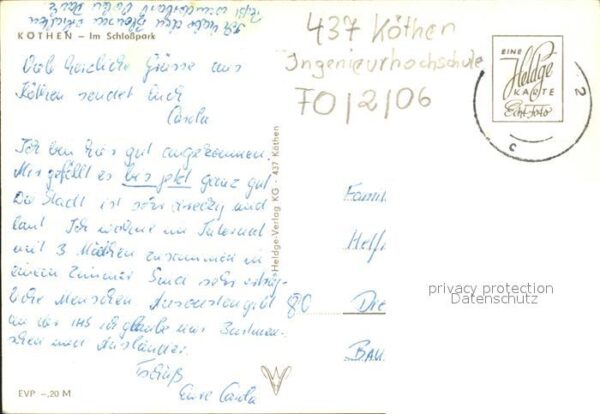 Ich habe den
KÖTHEN – Im Schloßpark
Viele herzliche Grüsse aus
Köthen sendet Euch
Carla
Ich bin hier gut angekommen.
Mir gefällt es bis jetzt ganz gut.
Die Stadt ist sehr dreckig und
laut. Ich wohne im Internat
mit 3 Mädchen zusammen in
einem Zimmer. Sind sehr
Menschen. Ansonsten gibt
an der IHS ich glaube nur
und Ausländer.
Tschüß
Eure Carla
EVP –,20 M
»Heldge-Verlag KG · 437 Köthen
437 Köthen
Ingenieurhochschule
FO/2/06
EINE
Heldge
KARTE
Echt Foto
2
c
Famil
Helf
80 Dre
Bau
privacy protection
Datenschutz